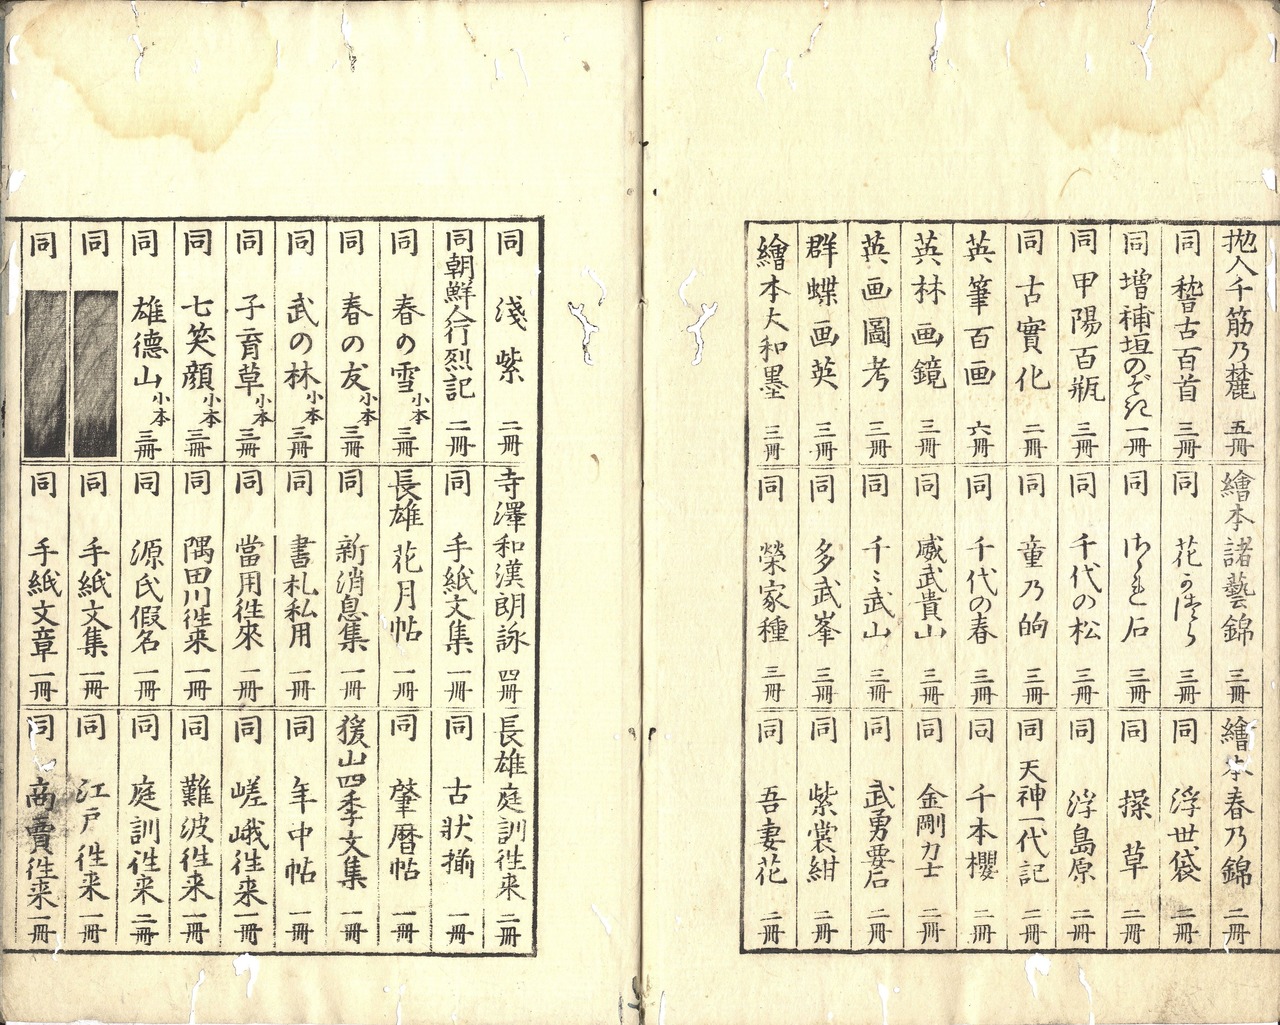 抛入千筋乃麓 五冊
同 稽古百首 三冊
同 増補垣のぞき 一冊
同 甲陽百瓶 三冊
同 古實化 二冊
英筆百画 六冊
英林画鏡 三冊
英画圖考 三冊
群蝶画英 三冊
繪本大和墨 三冊
繪本諸藝錦 三冊
同 花 三冊
同 石 三冊
同 千代の松 三冊
同 童乃的 三冊
同 千代の春 三冊
同 威武貴山 三冊
同 千〻武山 三冊
同 多武峯 三冊
同 榮家種 三冊
繪本春乃錦 二冊
同 浮世袋 二冊
同 操草 二冊
同 浮島原 二冊
同 天神一代記
同 千本櫻 二冊
同 金剛力士 二冊
同 武勇要石 二冊
同 紫裳紺 二冊
同 吾妻花 二冊
同 淺紫 二冊
同 朝鮮人行烈記 二冊
同 春の雪 小本 三冊
同 春の友 小本 三冊
同 武の林 小本 三冊
同 子育草 小本 三冊
同 七笑顔 小本 三冊
同 雄徳山 小本 三冊
同
同
寺澤和漢朗詠 四冊
同 手紙文集 一冊
長雄花月帖 一冊
同 新消息集 一冊
同 書札私用 一冊
同 當用徃來 一冊
同 隅田川徃来 一冊
同 源氏假名 一冊
同 手紙文集 一冊
同 手紙文章 一冊
長雄庭訓徃来 二冊
同 古狀揃 一冊
同 肇暦帖 一冊
猨山四季文集 一冊
同 年中帖 一冊
同 嵯峨徃来 一冊
同 難波徃来 一冊
同 庭訓徃来 二冊
同 江戸徃来 一冊
同 商賣徃来 一冊